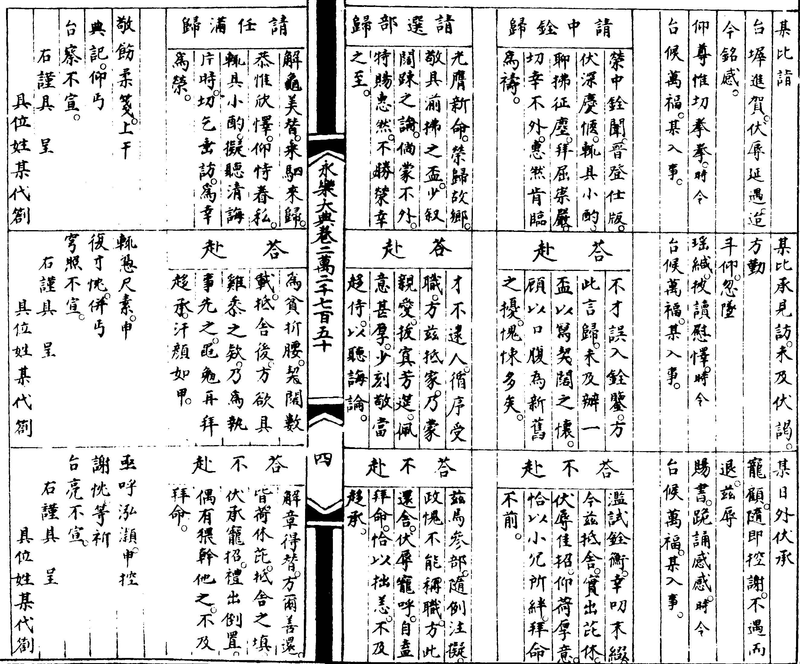 某比詣
台墀進賀。伏辱延遇。迨
今銘感。
仰尊惟切拳拳。時令
台候萬福。某入事。
請中銓歸
榮中銓闈。晉登仕版。
伏深慶愜。輒具小酌。
聊拂征塵。拜屈崇嚴。
切幸不外。惠然肯臨
爲禱。
請選部歸
光膺新命。榮歸故鄉。
敬具前拂之盃。少叙
闊踈之論。倘蒙不外。
特賜惠然。不勝榮幸
之至。
請任滿歸
解龜美替。乘駟來歸。
恭惟欣懌。仰恃眷私。
輒具小酌。擬聽清誨
片時。切乞垂訪。爲幸
爲榮。
敬飭柔箋。上干
典記。仰丐
台察不宣。
右謹具 呈
具位姓某代劄
某比承見訪。未及伏謁。
方勤
斗仰。忽墜
瑶緘。披讀慰懌。時令
台候萬福。某入事。
荅赴
不才誤入銓鑒。方
此言歸。未及辦一
盃以寫契闊之懷。
顧以口腹為新舊
之擾。愧悚多矣。
荅赴
才不逮人。循序受
職。方兹抵家。乃蒙
親愛。拔寘芳筵。佩
意甚厚。少刻敬當
趍侍。以聽誨論。
荅赴
為貧折腰。契闊數
載。抵舍後。方欲具
雞黍之欵。乃爲執
事先之。勉再拜
趍承。汗顔如甲。
輒憑尺素。申
復寸忱。併丐
穹照不宣。
右謹具 呈
具位姓某代劄
某日外伏承
寵顧。隨即控謝。不遇而
退。兹辱
賜書。跪誦感感。時令
台候萬福。某入事。
荅不赴
濫試銓衡。幸叨末綴
今兹抵舍。實出芘休
伏辱佳招。仰荷厚意。
恰以小兒所絆。拜命
不前。
荅不赴
兹爲參部。隨例注擬。
政愧不能稱職。方此
還舍。伏辱寵呼。自盍
拜命。恰以拙恙。不及
趍承。
荅不赴
解章得替。方爾善還。
皆荷休芘。抵舍之填
伏承寵招。禮出倒置。
偶有猥幹他之。不及
拜命。
亟呼泓潁。申控
謝忱。等祈
台亮不宣。
右謹具 呈
具位姓某代劄
永樂大典卷二萬二千七百五十
四